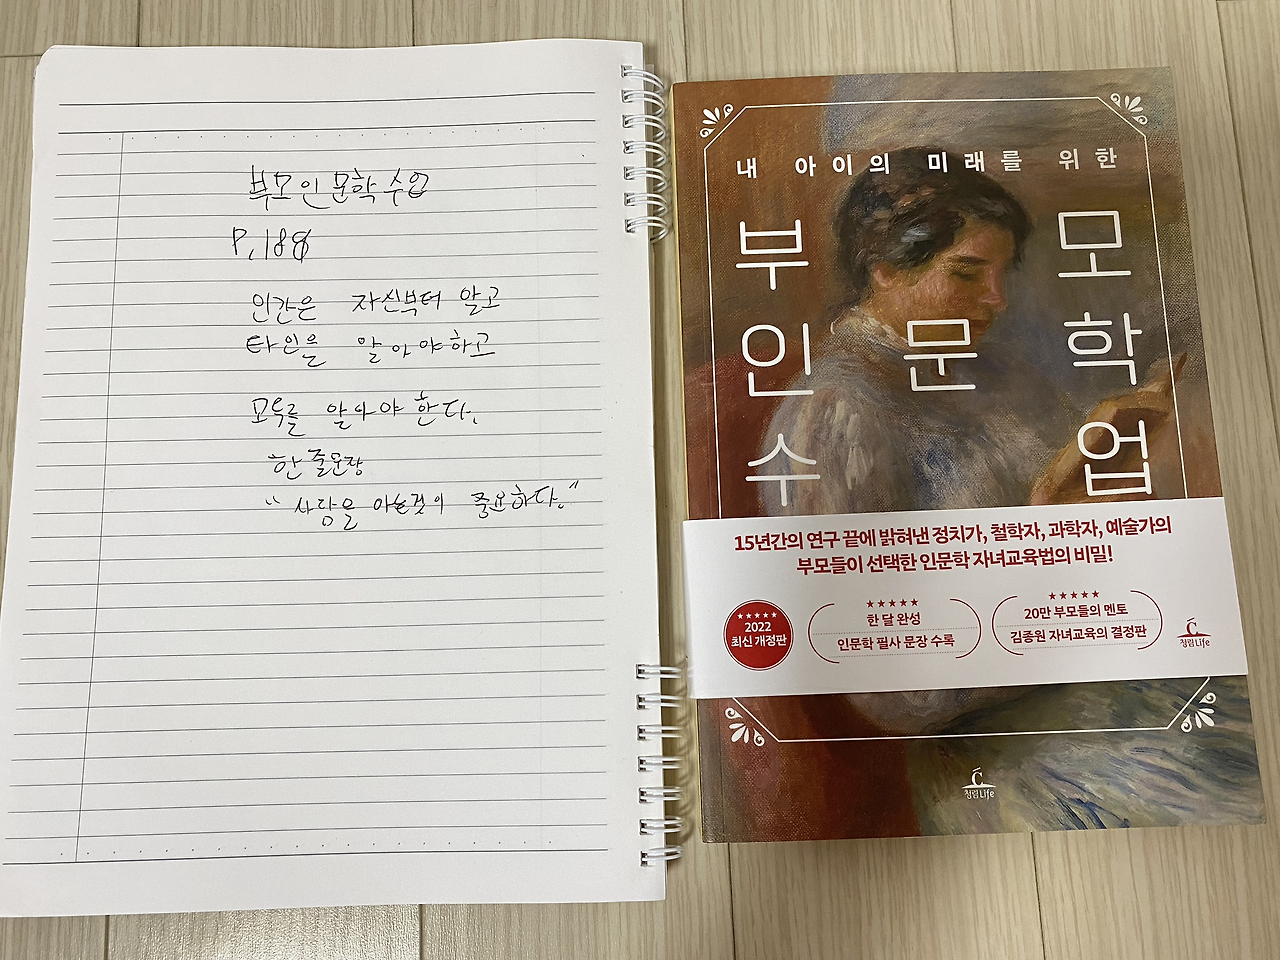 부모인문학수업
P.188
인간은 자신부터 알고
타인을 알아야하고
모두를 알아야 한다.
한 줄문장
"사람을 아는것이 중요하다."
내 아이의 미래를 위한
부모
인문학
수업
15년간의 연구 끝에 밝혀낸 정치가, 철학자, 과학자, 예술가의
부모들이 선택한 인문학 자녀교육법의 비밀!
★★★★★
2022
최신 개정판
★★★★★
한 달 완성
인문학 필사 문장 수록
★★★★★
20만 부모들의 멘토
김종원 자녀교육의 결정판
청림Life
청림Life